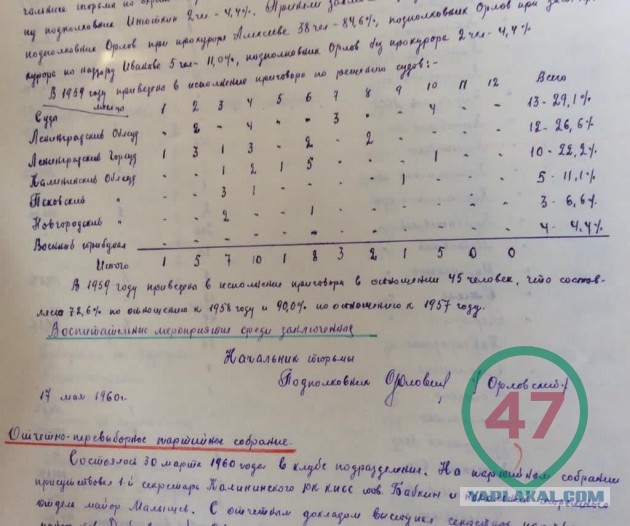 подполковник Итоткин 2 чел - 4,4%.
подполковник Орлов при прокуроре Алексеве 38 чел - 84,6%, подполковник Орлов при
курора по надзору Иванкве 5 чел - 11,0%, подполковник Орлов без прокурора 2 чел - 4,4%
В 1959 году приведено в исполнение приговора по решению судов:-
месяцы 1 2 3 4 5 6 7 8 9 10 11 12 Всего
Суда
Ленинградский Облсуд - 2 - 4 - - 3 - - 4 - - 13 - 29,1%
Ленинградский Горсуд 1 3 1 3 - 2 - 2 - - - - 12 - 26,6%
Калининский Облсуд - - - 1 2 1 5 - - - 1 - - 10 - 22,2%
Псковский " - - 3 1 - - - - 1 - - - 5 - 11,1%
Новгородский " - - 2 - - 1 - - - - - - 3 - 6,6%
Военный трибунал - - - - - - - - - - - - 4 - 4,4%
Итого 1 5 7 10 1 8 3 2 1 5 0 0
В 1959 году приведено в исполнение приговора в отношении 45 человек, что состав-
ляет 72,6% по отношению к 1958 году и 90,0% по отношению к 1957 году.
Воспитательные мероприятия среди заключенных
Начальник тюрьмы
Подполковник Орловский / Орловский /
17 мая 1960г.
47
Отчетно-перевыборное партийное собрание.
Состоялся 30 марта 1960 года в клубе подразделения. На партийном собрании
присутствовал 1-й секретарь Калининского РК КПСС тов. Бабкин и
отдела майор Малышев. С отчетным докладом выступил секретарь
YAPLAKAL.COM